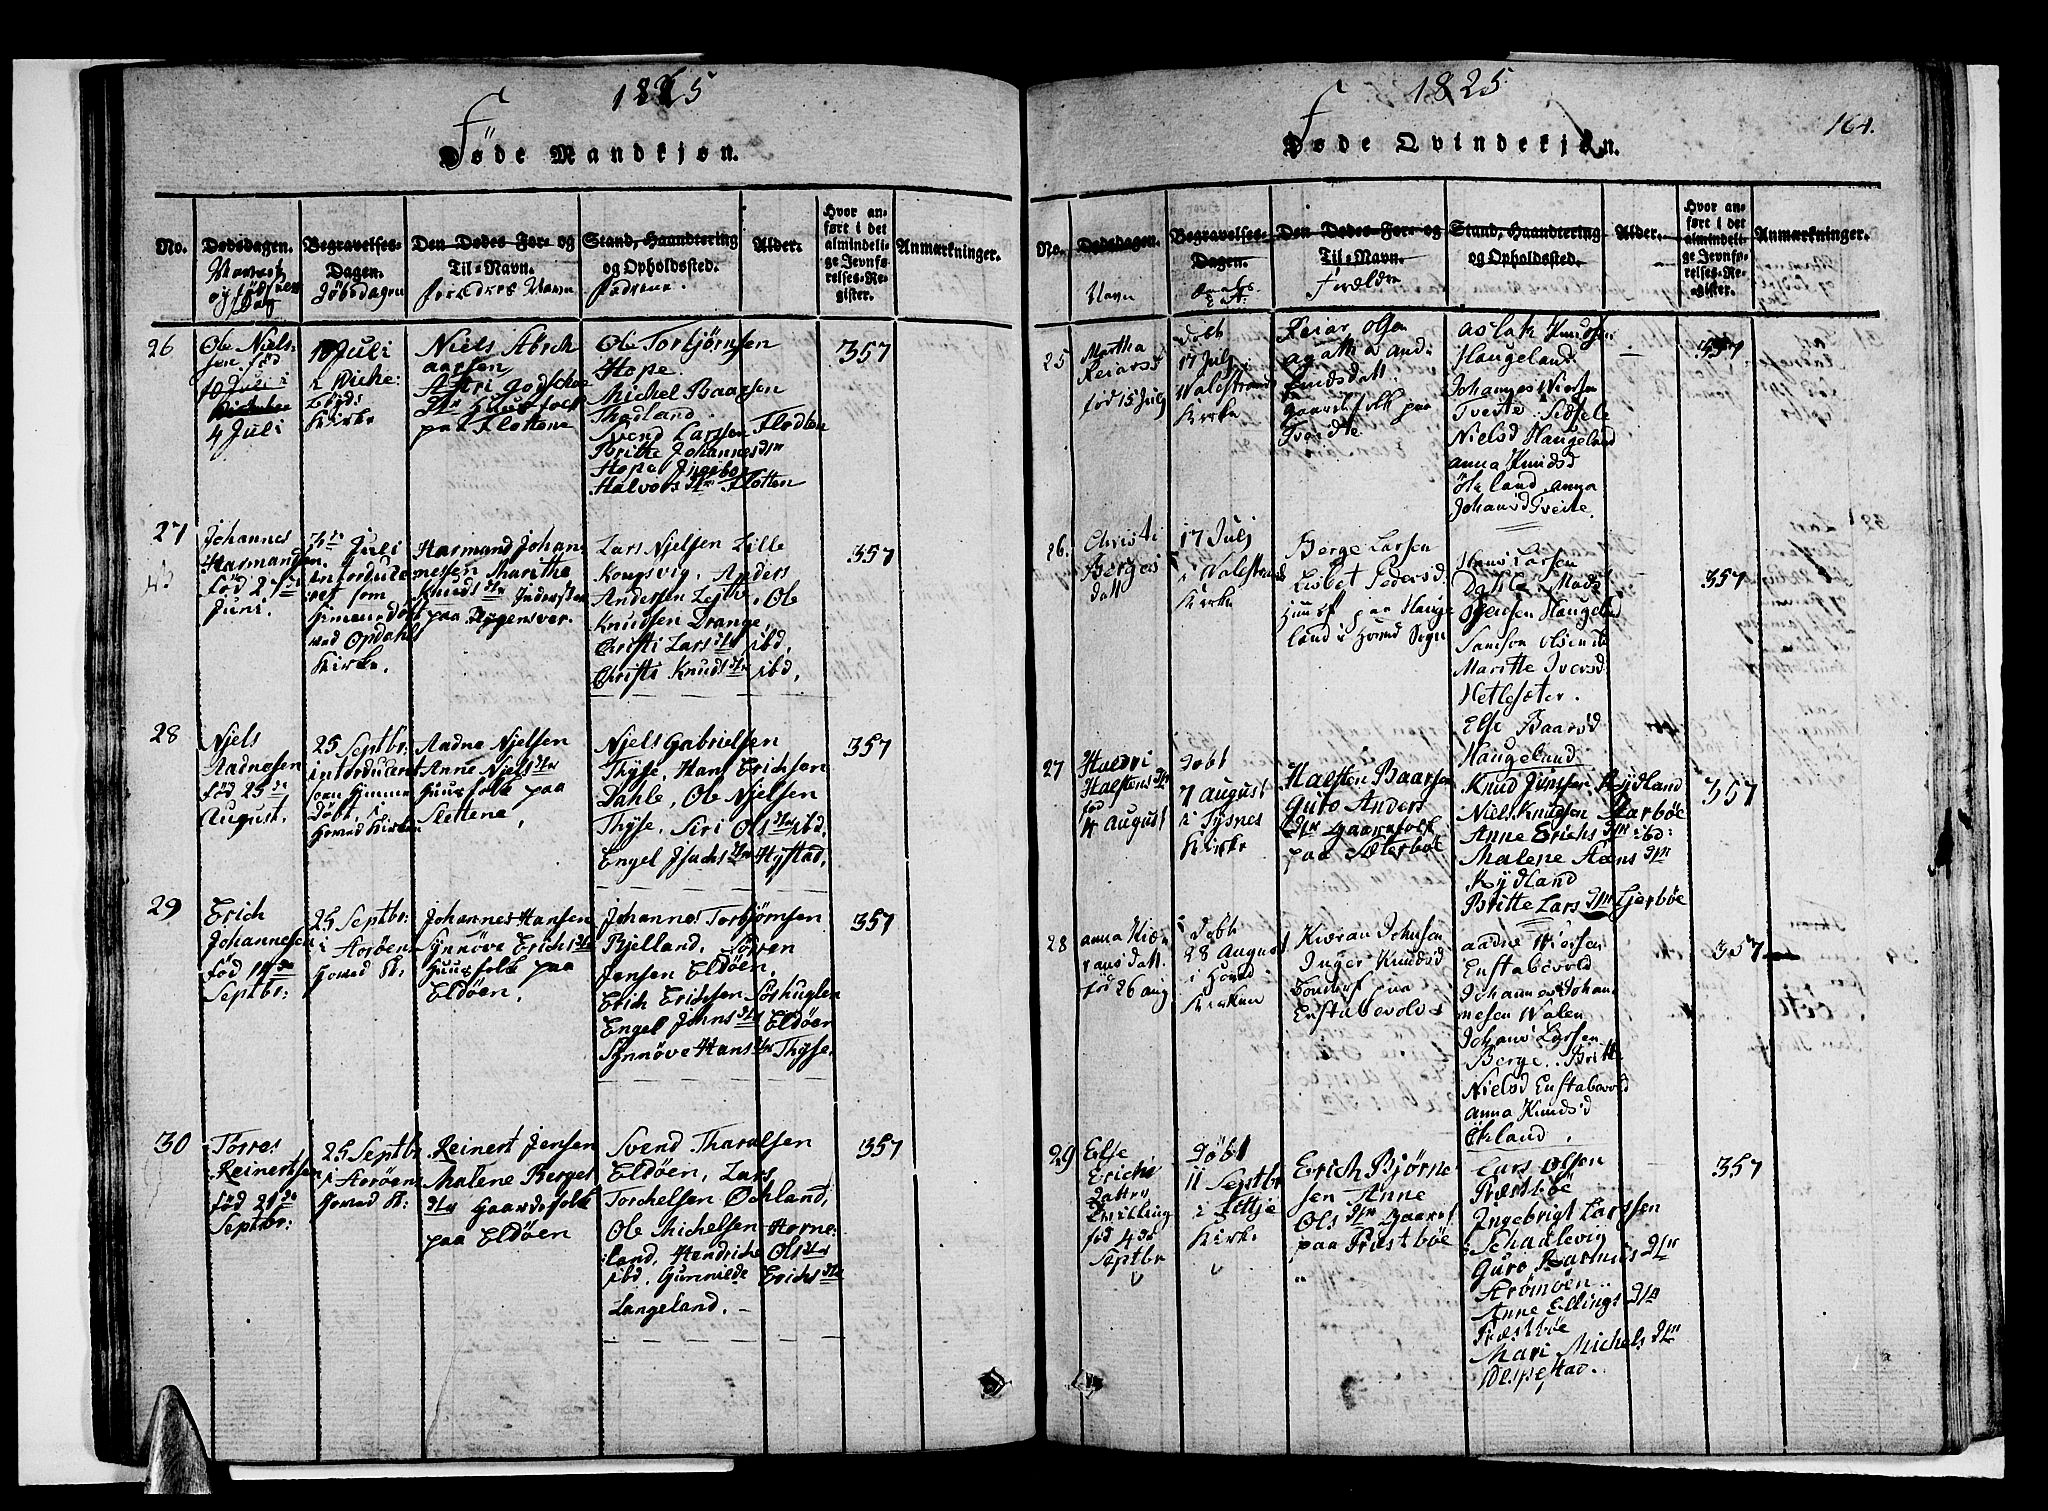 1825
Føde Mandkjøn.
No.
Dødsdagen.
Begravelses-
Dagen.
Døbsdagen
Den Dødes For- og
Til-Navn.
Forældres Navn
Stand, Haandtering
og Opholdssted.
Faddrene.
Alder.
Hvor an-
ført i det
almindeli-
ge Jevnfø-
relses-Re-
gister.
Anmærkninger.
26
Ole Niels-
sen. fød
4 Juli
10 Juli
i Wiche-
Kirke
Niels Absch
aarsen
Huusfolk
paa Flottene
Ole Torbjørnsen
Hope.
Michel Baarsen
Thadland.
Svend Larsen Flodten
Brithe Johannesdtr
Hope
Halvorsdtr Flotten
357
27
Johannes
Harmandsen.
fød 27de
Juni.
Juli
introduce-
ret som
hjemmedøbt
ved Opdahls
Kirke.
Harmand Johan-
nessen Marithe
Knudsdtr Inderster
paa
Lars Njelsen Lille
Kongsvig, Anders
Andersen Lejthe, Ole
Knudsen Drange,
Christi Larsdtr ibd,
Christi Knudsdtr ibd,
357
28
Njels
Aadnesen
fød 25de
August.
25 Septbr:
introduceret
som hjemme
Døbt i
Homed Kirken
Aadne Njelsen
Anne Njelsdtr
Huusfolk paa
Slettene.
Njels Gabrielsen
Thyse, Hans Erichsen
Dahle, Ole Njelsen
Thyse, Siri Olsdtr ibd.
Engel Isachsdtr Hystad,
357
29
Erich
Johannesen
fød 14de
Septbr:
25 Septbr:
i Aarøen
Homed K:
Johannes Hansen
Synnøve Erichsdtr
Huusfolk paa
Eldøen.
Johannes Torbjørnsen
Bjelland, Søren
Jensen Eldøen,
Erich Erichsen Sørhuglen
Engel Johnsdtr Eldøen
Synnøve Hansdtr Thyse.
357
30
Torres
Reinertsen
fød 21de
Septbr:
25 Septbr
i Aarøen
Homed K:
Reinert Jensen
Malene Berges
dtr Gaardsfolk
paa Eldøen
Svend Tharalsen
Eldøen, Lars
Torchelsen Ochland,
Ole Michelsen Horne-
land, Hendriche Olsdtr
ibd, Gunnilde Erichsdtr
Langeland.
357
1825
164.
Føde Qvindekjøn.
No.
Dødsdagen.
Navn
Begravelses-
Dagen.
Den Dødes For- og
Til-Navn.
Forældre
Stand, Haandtering
og Opholdssted.
Alder.
Hvor an-
ført i det
almindeli-
ge Jevnfø-
relses-Re-
gister.
Anmærkninger.
25
Martha
Reiarsd
fød 15 July
døbt
17 July
Walestrands
Kirke
Reiar Olsen
Agatha And-
Gaardsfolk paa
Tveidte
Aslak Knudsen
Haugeland.
Johannes Niersen
Tveite. Sidsele
Nielsd Haugeland
Anna Knudsd
Økland, Anna
Johansd Tveite.
357
26.
Christi
Berges
datt
17 July
i Walestrands
Kirke
Berge Larsen
Lisbet Pedersd
Huusf paa Hauge
land i Homed Sogn
Hans Larsen
Dahle, Mads
Iversen Haugeland
Samson Olsen ib
Maritte Iversd
Hetlesæter.
Else Baarsd
Haugeland.
357
27
Huldri
Halstensdtr
fød
4 August
døbt
7 August
i Tysnes
Kirke
Halsten Baarsen
Guro Anders
dtr Gaardfolk
paa Sæterbøe
Knud Jenssen Rydland
Niels Knudsen Aarbøe
Anne Erichsdtr ibd:
Malene Aaensdtr
Rydland
Britte Larsdtr Gjerbøe
357
28
Anna Kiæ-
ransdatt
fød 26 aug
døbt
28 August
i Homed
Kirken
Kieran Johnsen
Inger Knudsd
Bondef paa
Enstabevold
Aadne Niersen
Enstabevold
Johannes Johan
nesen Walen
Johans Larsen
Berge. Britte
Nielsd Enstabevold
Anna Knudsd
Økland.
357
29
Else
Erichs
Datter
tvilling
fød 4de
Septbr
Døbt
11 Septbr
i Fettje
Kirke
Erich Bjørne
sen Anne
Olsdtr Gaardf
paa Præstbøe
Lars Olsen
Præstbøe
Ingebrigt Larssen
Schaalevig
Guro Rasmusdtr
Strømøen.
Anne Ellingsdtr
Præstbøe
Mari Michelsdtr
Vespestad.
357